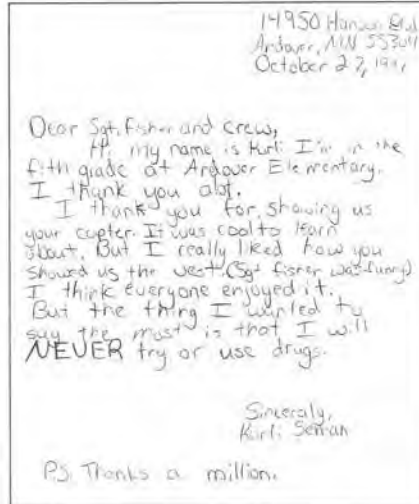 14950 Hanson Blvd
Andover, MN 55304
October 27, 19
Dear Sgt. Fisher and crew,
Hi my name is Karli I'm in the
fith grade at Andover Elementary.
I thank you alot.
I thank you for showing us
your copter. It was cool to learn
about. But I really liked how you
showed us the vest (Sgt fisher was funny)
I think everyone enjoyed it.
But the thing I wanted to
say the most is that I will
NEVER try or use drugs.
Sinceraly,
Karli
P.S. Thanks a million.